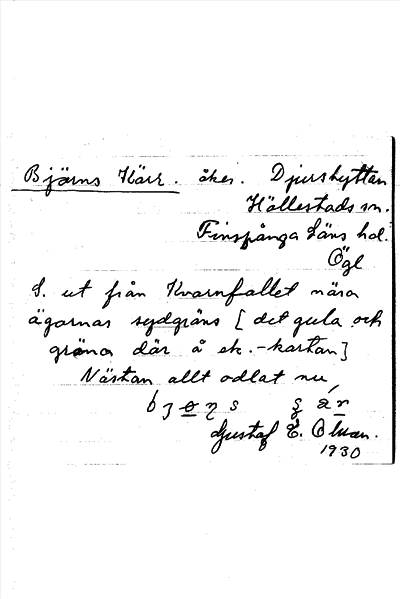 Björns Kärr. åker. Djurshyttan
Hällestads sn.
Finspånga Läns hd.
Ögl
S. ut från Kvarnfallet nära
ägornas sydgräns [det gula och
gröna där å ek.-kartan]
Nästan allt odlat nu,
Gustaf E. Olsson.
1930